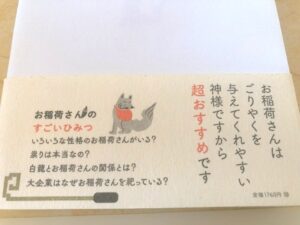 お稲荷さんは
ごりやくを
与えてくれやすい
神様ですから
超おすすめです
お稲荷さんの
すごいひみつ
いろいろな性格のお稲荷さんがいる?
祟りは本当なの?
白龍とお稲荷さんの関係とは?
大企業はなぜお稲荷さんを祀っている?
定価1760円